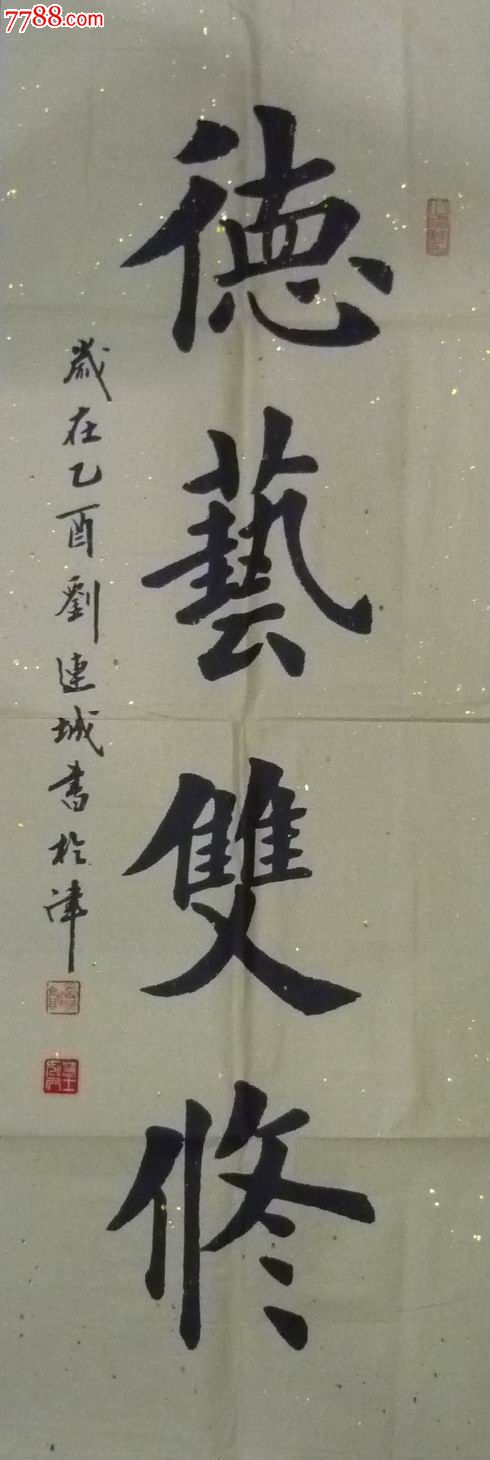 7788.com
德藝雙修
歲在乙酉劉連城書於津